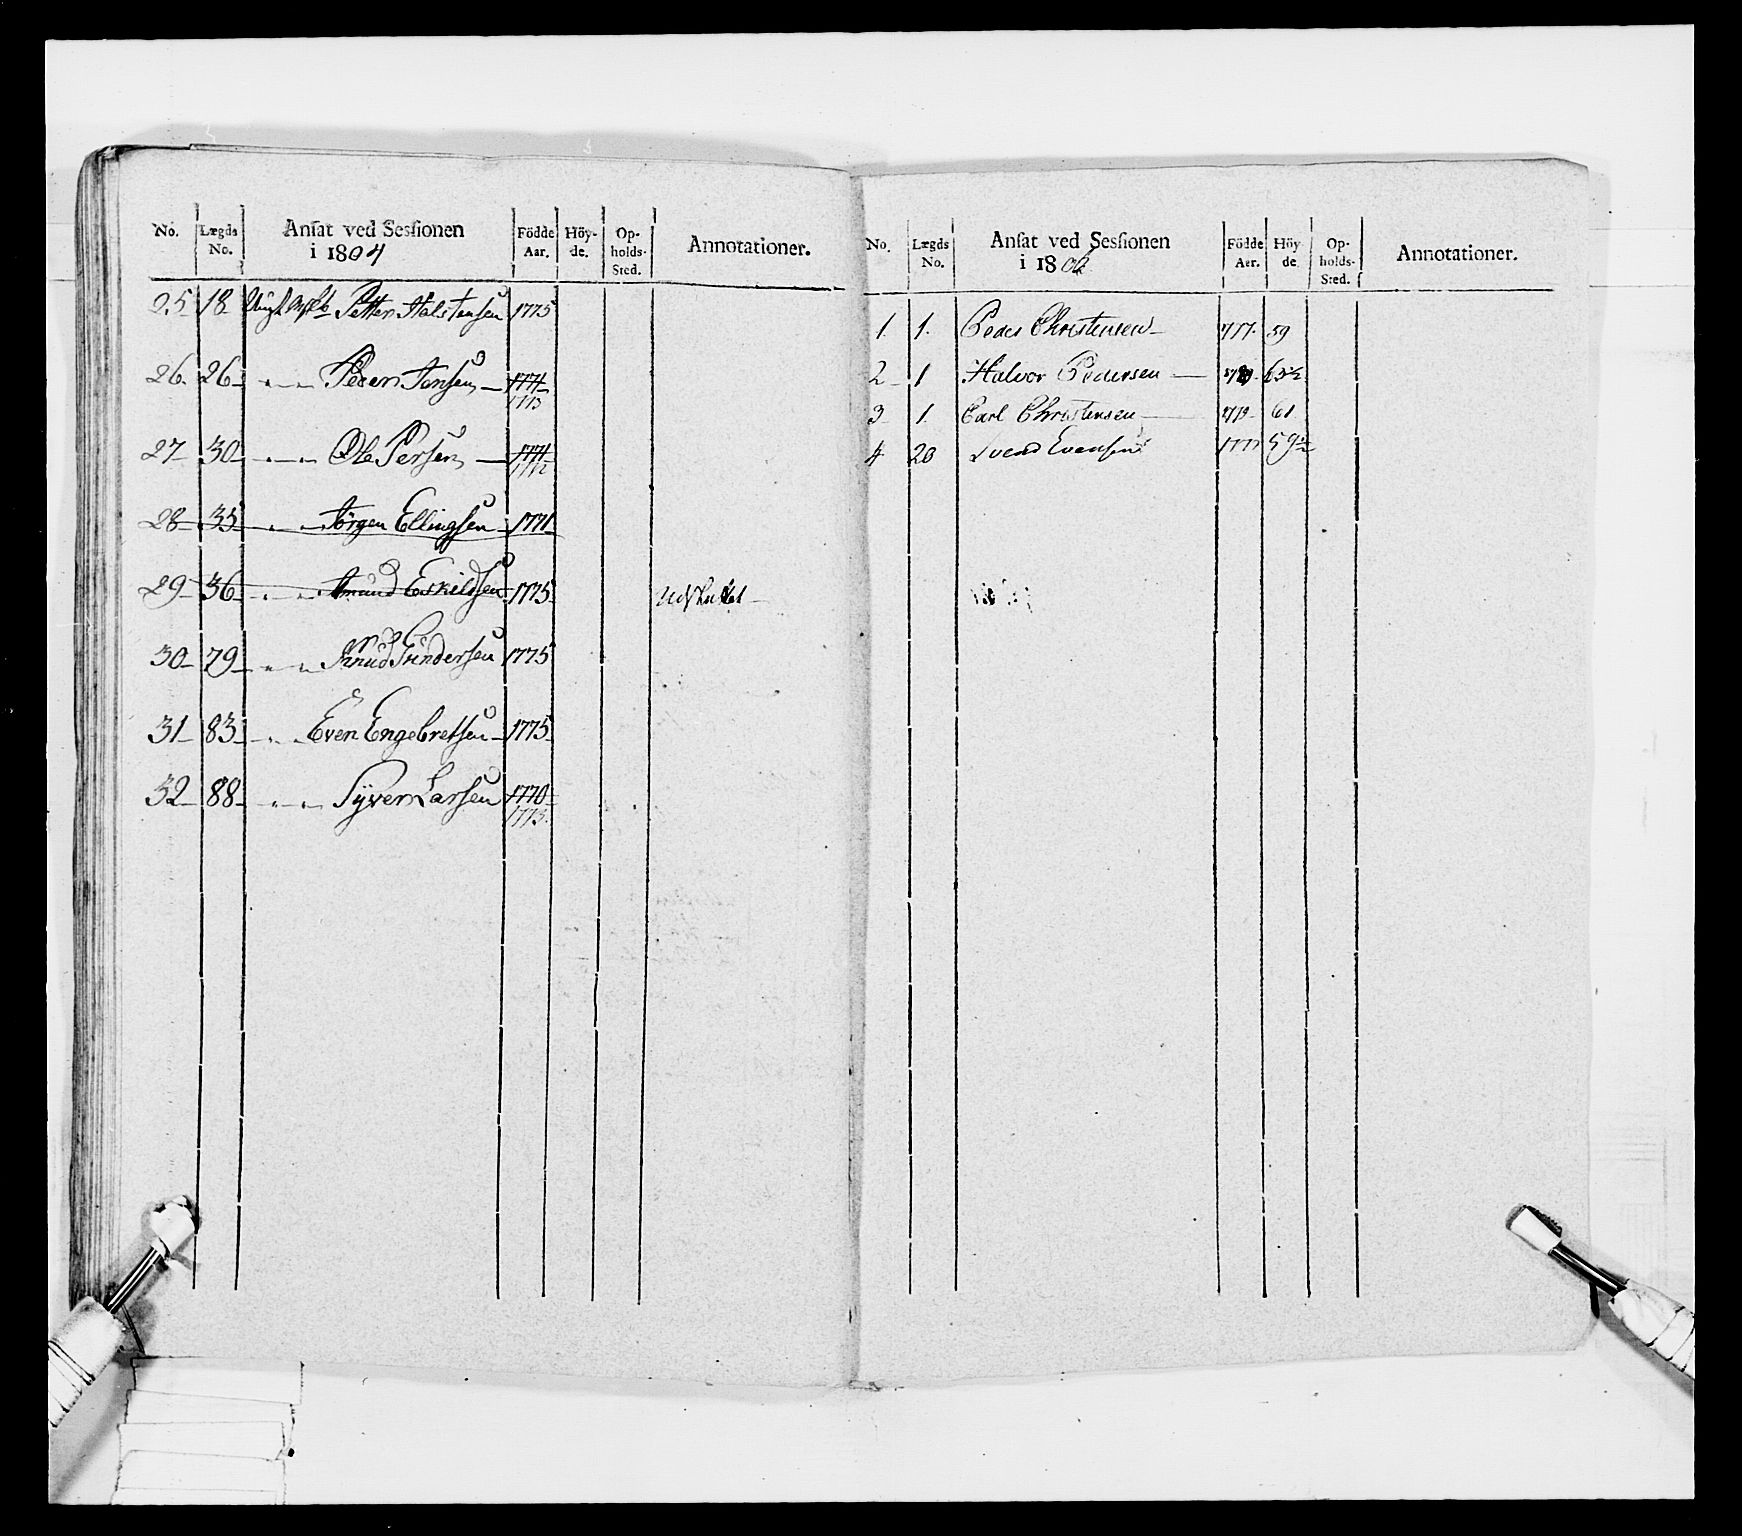 No. Lægds No. Ansat ved Sessionen i 1804 Födde Aar. Höy-de. Op-holds-Sted. Annotationer.
25 18 Petter Halstensen 1775
26 26 — " — Peder Jensen — 1771 1773
27 30 — " — Ole Persen — 1771 1772
28 35 — " — Jörgen Ellingsen 1771
29 36 — " — Amund Eskildsen 1775 Udskudet
30 79 — " — Knud Gundersen 1775
31 83 — " — Even Engebretsen — 1775
32 88 — " — Syver Larsen 1770 1773.
No. Lægds No. Ansat ved Sessionen i 1806 Födde Aar. Höy de Op-holds-Sted. Annotationer.
1 1. Peder Christensen — 777. 59
2 1 Halvor Pedersen — 63½
3 1. Carl Christensen — 61
4 20 Svend Evensen 1777 59½